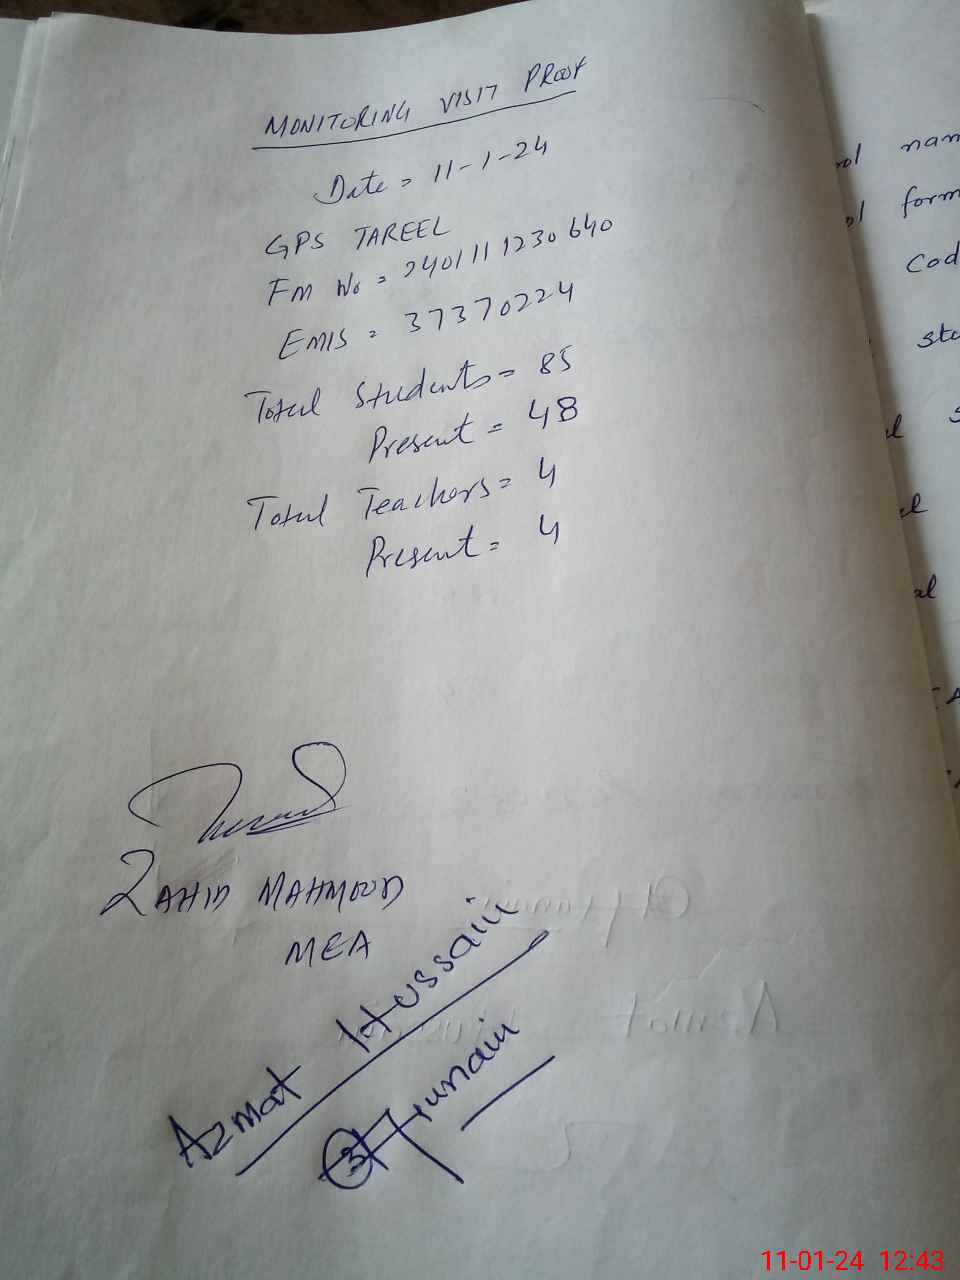 MONITORING VISIT PROOF
Date = 11-1-24
GPS TAREEL
FM No = 2401111230640
EMIS = 37370224
Total Students = 85
Present = 48
Total Teachers = 4
Present = 4
ZAHID MAHMOOD
MEA
Azmat Hussain
nam
form
Cod
stu
11-01-24 12:43